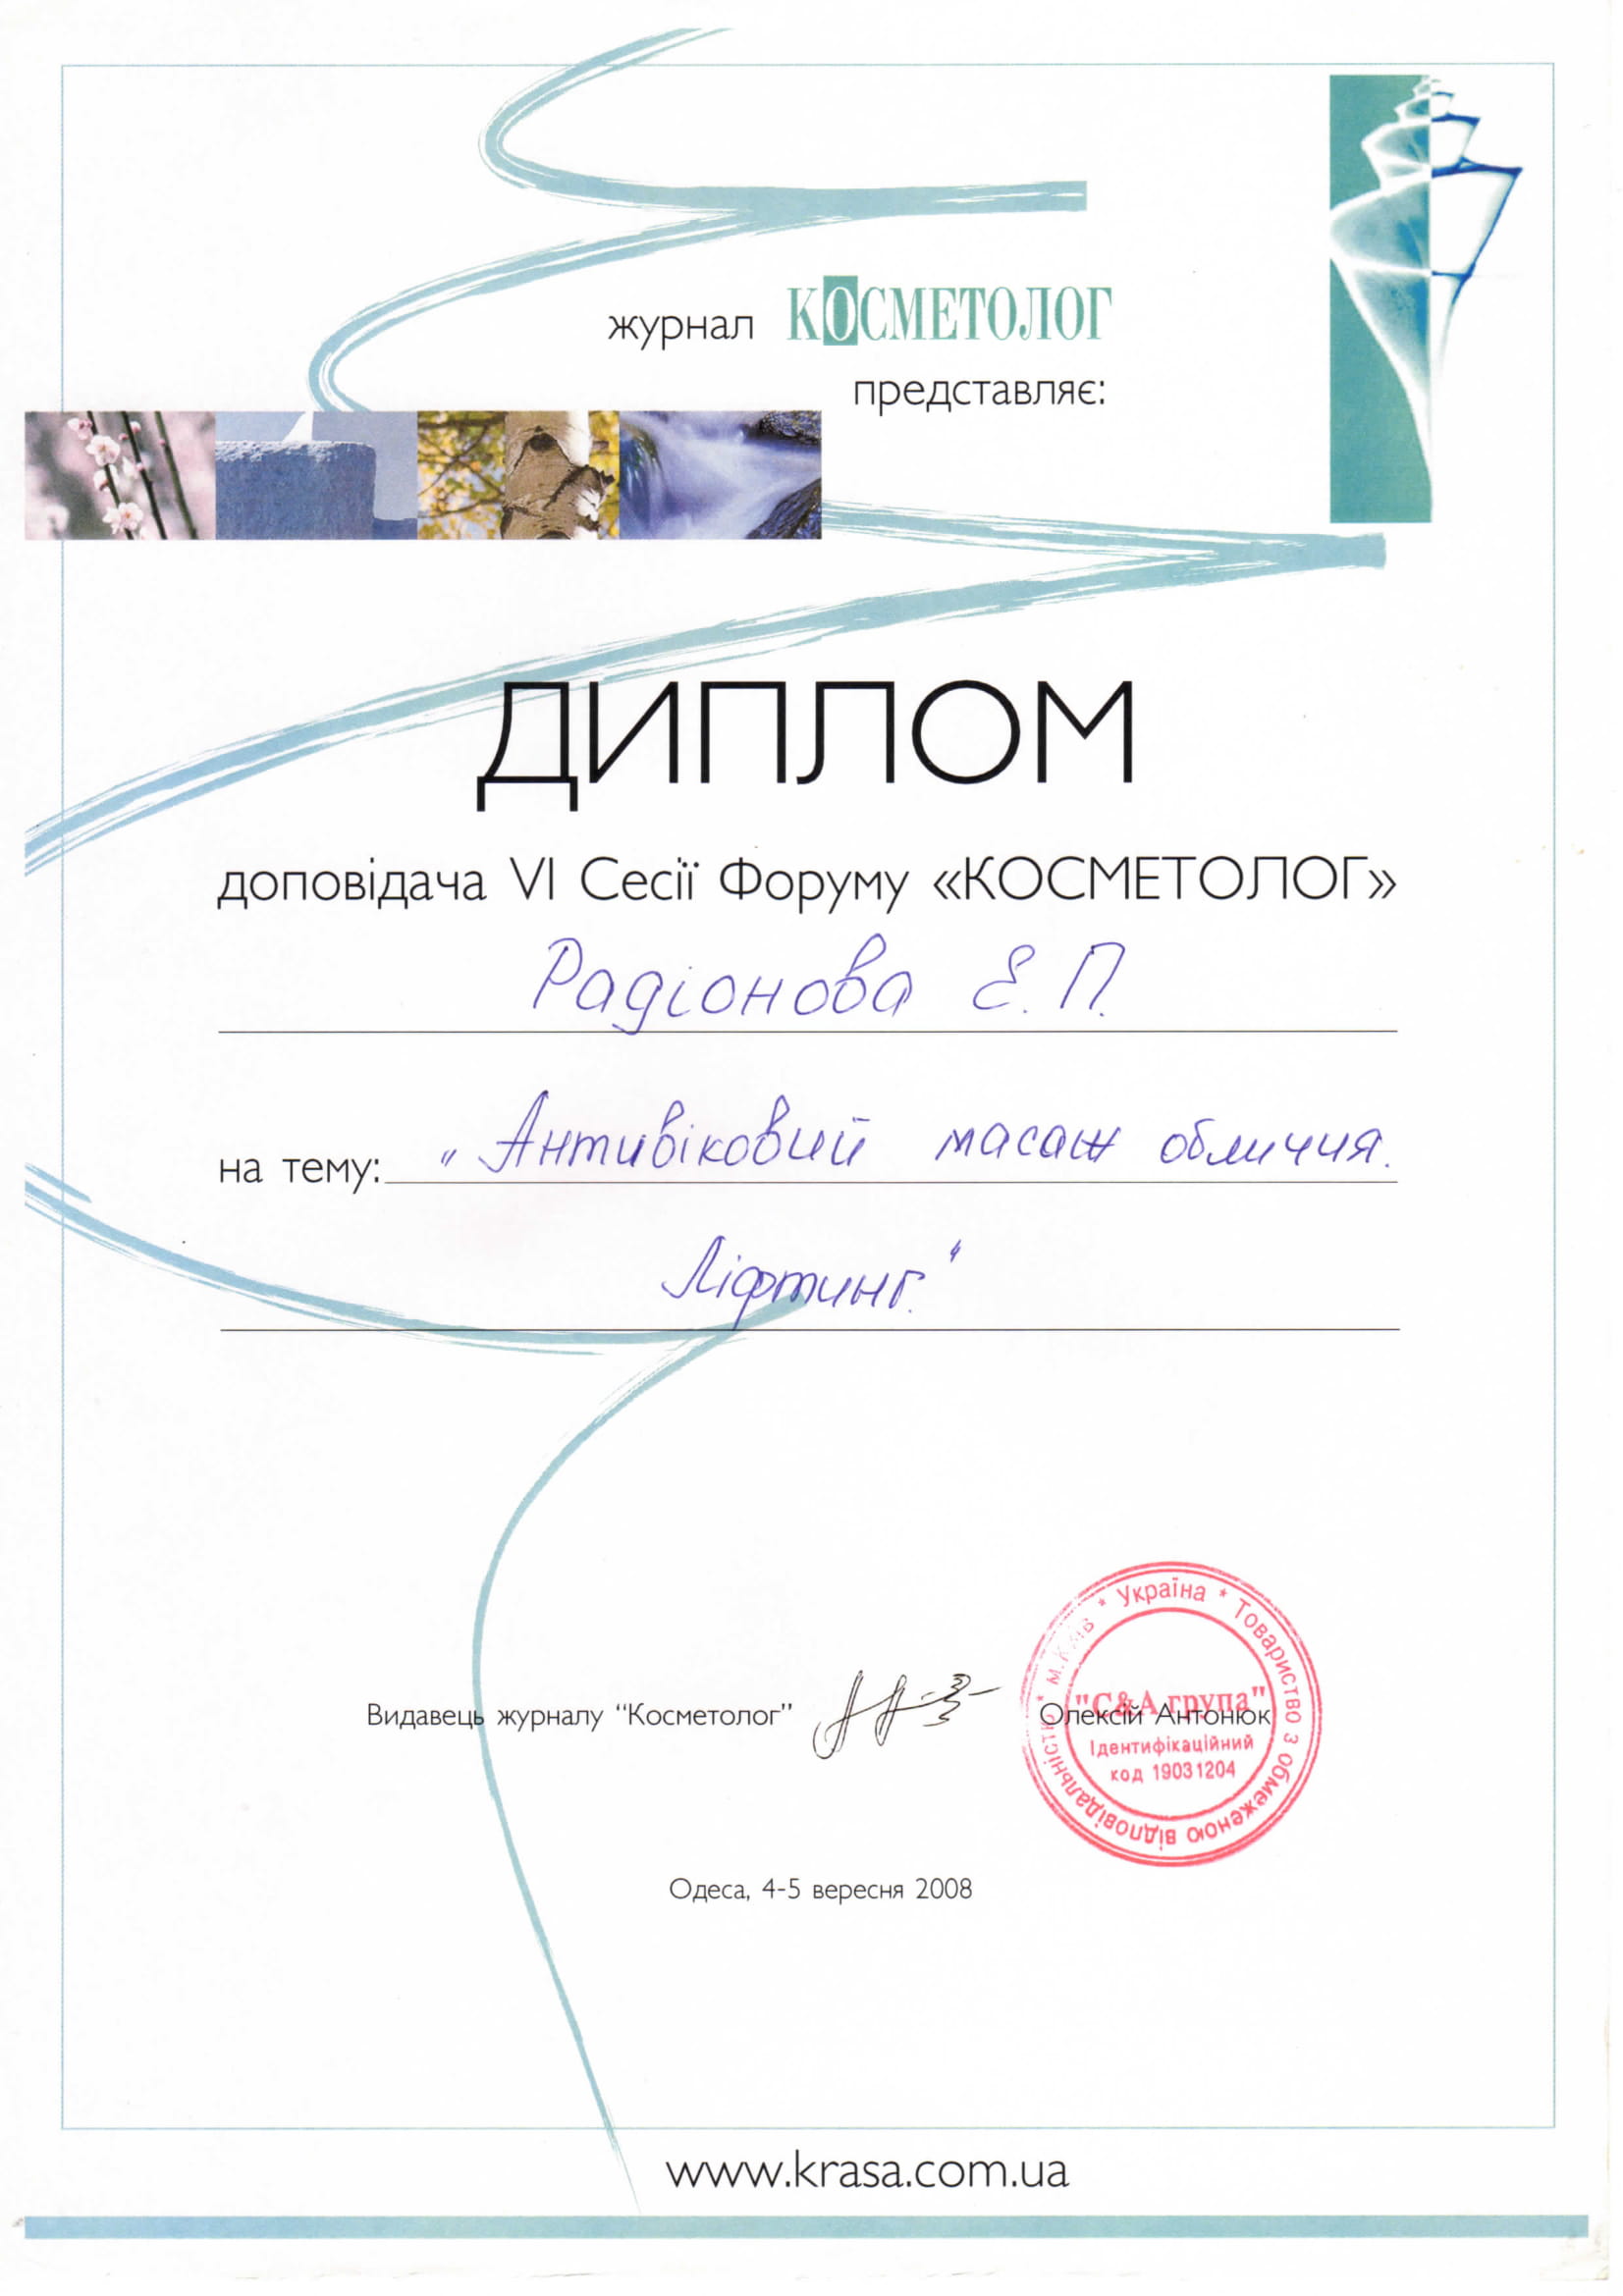 журнал КОСМЕТОЛОГ
представляє:
ДИПЛОМ
доповідача VI Сесії Форуму «КОСМЕТОЛОГ»
Радіонова Е.П.
на тему: „Антивіковий масаж обличчя.
Ліфтинг."
Видавець журналу "Косметолог" Олексій Антонюк
* Україна * Товариство з обмеженою відповідальністю * м.Київ
"С&А група"
Ідентифікаційний
код 19031204
Одеса, 4-5 вересня 2008
www.krasa.com.ua